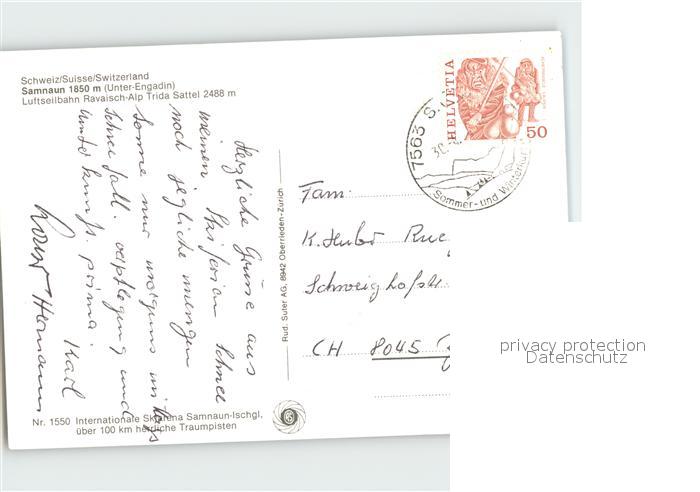 Schweiz/Suisse/Switzerland
Samnaun 1850 m (Unter-Engadin)
Luftseilbahn Ravaisch-Alp Trida Sattel 2488 m
Herzliche Grüsse aus
meinen Skiferien Schnee
noch jegliche mengen
Sonne nur morgens mittags
Schneefall. verpflegung und
Unterkunft prima.
Karl
Hermann
Nr. 1550 Internationale Skiarena Samnaun-Ischgl,
über 100 km herrliche Traumpisten
Rud. Suter AG, 8942 Oberrieden-Zürich
HELVETIA
50
7563 S
Sommer- und Winterkur
Fam.
K. Huber
CH 8045
privacy protection
Datenschutz